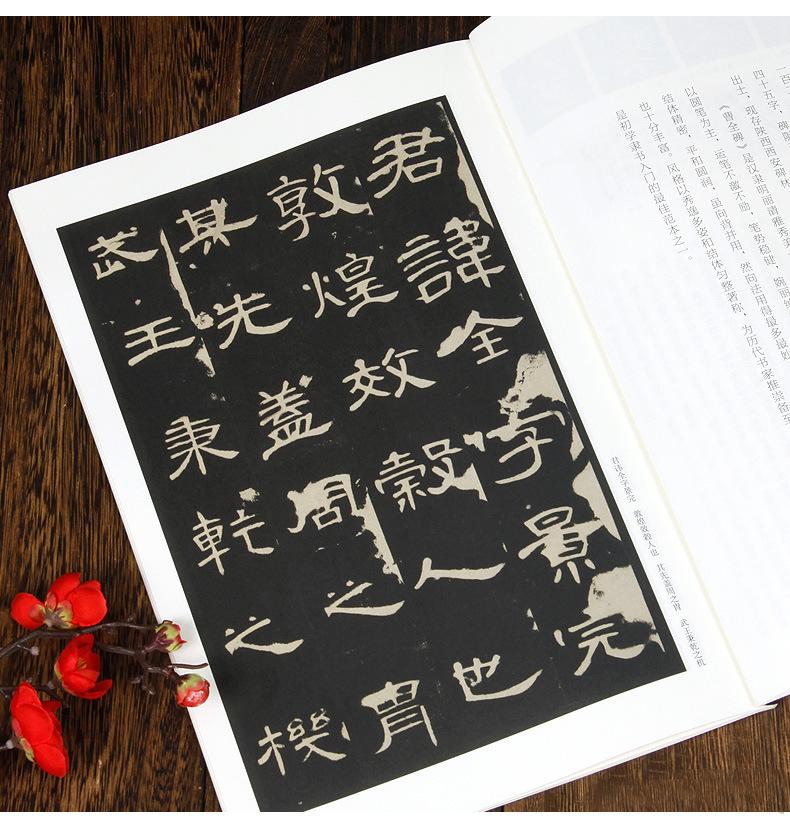 一百
四十五字，碑
出土，现存陕西西安碑林
《曹全碑》是汉隶明丽清雅秀美
以圆笔为主，运笔不激不励，笔势稳健，婉丽
结体精密，平和圆润，虽向背并用，然向法用得最多最妙
也十分丰富。风格以秀逸多姿和结体匀整著称，为历代书家推崇备至
是初学隶书入门的最佳范本之一。
君讳全字景完 敦煌效穀人也 其先盖周之胄 武王秉乾之机
君諱全字景完
敦煌效穀人也
其先蓋周之胄
武王秉乾之機